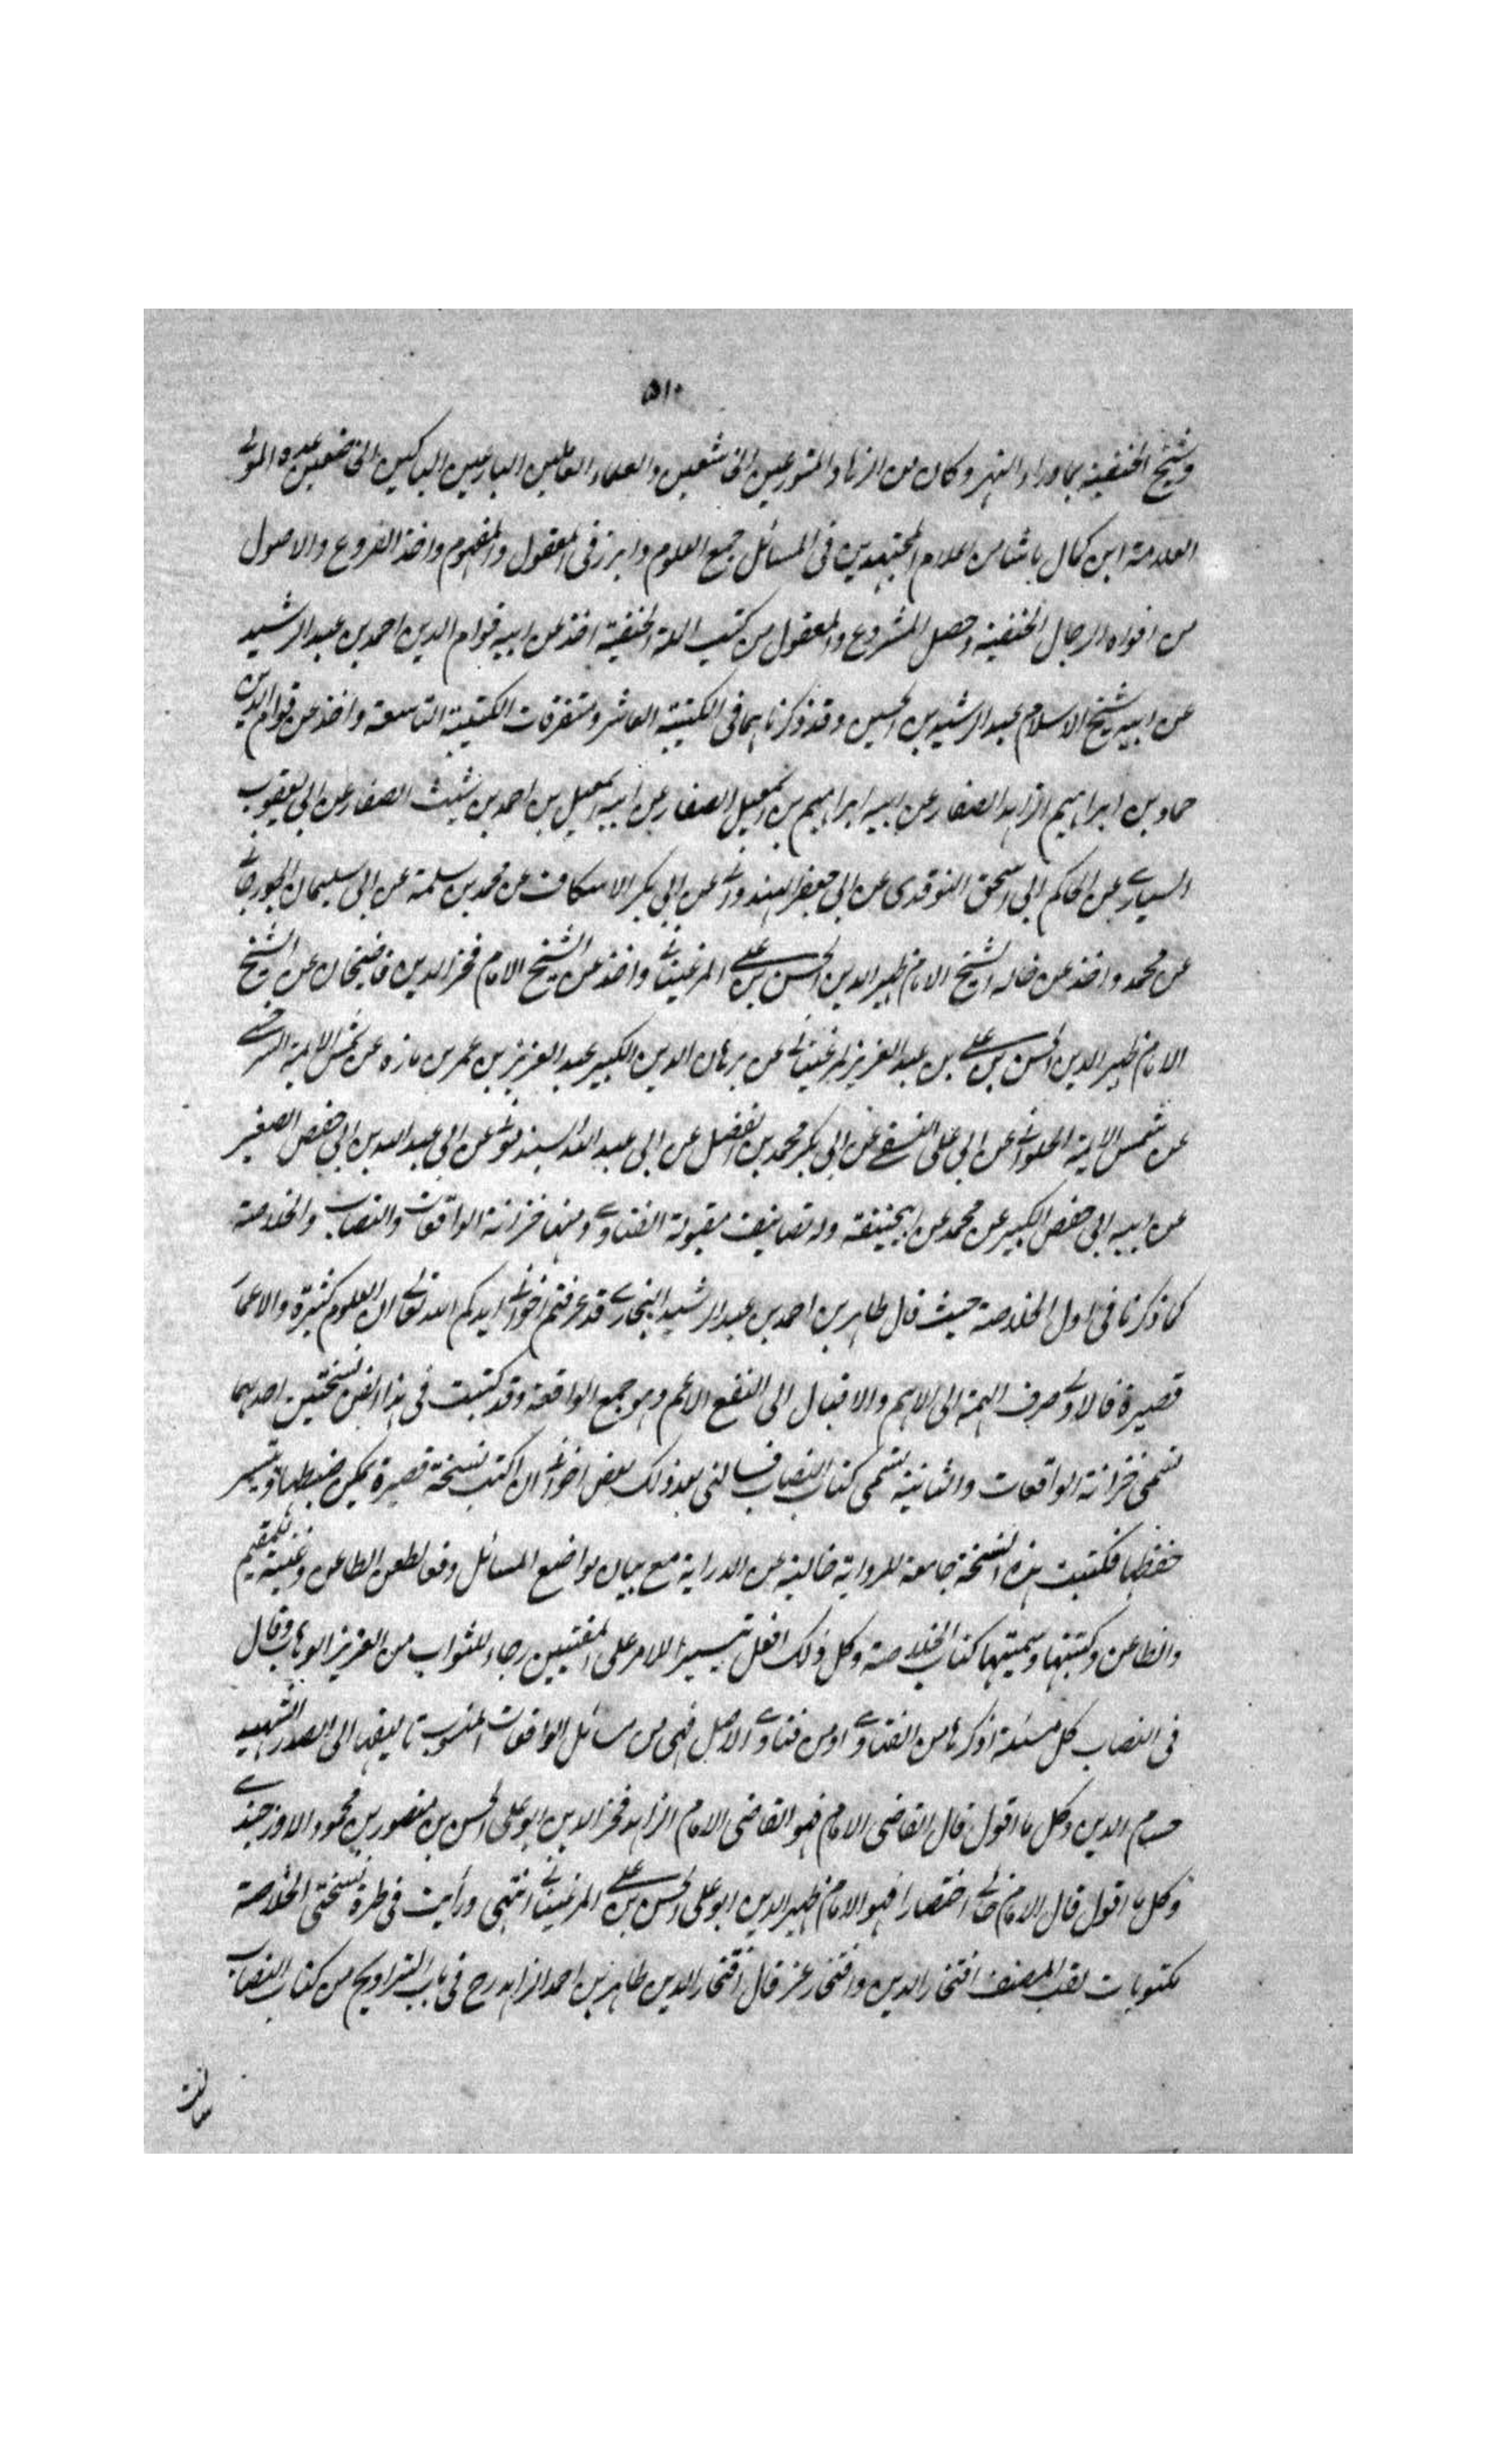 ٥١٠
وشيخ الحنفية بما وراء النهر وكان من الزهاد المتورعين الخاشعين والعلماء العاملين البارعين الباكين الخاضعين عده المولى
العلامة ابن كمال باشا من اعلام المجتهدين فى المسائل جمع العلوم وابرز فى المعقول والمفهوم واخذ الفروع والاصول
من افواه الرجال الحنفية وحصل المشروع والمعقول من كتب الملة الحنفية اخذ عن ابيه قوام الدين احمد بن عبد الرشيد
عن ابيه شيخ الاسلام عبد الرشيد بن الحسين وقد ذكرناهما فى الكتيبة العاشر ومتفرقات الكتيبة التاسعة واخذ عن قوام الدين
حماد بن ابراهيم الزاهد الصفار عن ابيه ابراهيم بن اسمعيل الصفار عن ابيه اسمعيل بن احمد بن شيث الصفار عن ابى يعقوب
السيارى عن الحاكم ابى اسحق النوقدى عن ابى جعفر الهندوانى عن ابى بكر الاسكاف عن محمد بن سلمة عن ابى سليمان الجورجانى
عن محمد واخذ عن خاله الشيخ الامام ظهير الدين الحسن بن على المرغينانى واخذ عن الشيخ الامام فخر الدين قاضيخان عن الشيخ
الامام ظهير الدين الحسن بن على بن عبد العزيز المرغينانى عن برهان الدين الكبير عبد العزيز بن عمر بن مازه عن شمس الايمة السرخسى
عن شمس الايمة الحلوانى عن ابى على النسفى عن ابى بكر محمد بن الفضل عن ابى عبد الله السبذمونى عن ابى عبد الله بن ابى حفص الصغير
عن ابيه ابى حفص الكبير عن محمد عن ابيحنيفة وله تصانيف مقبولة الفتاوى ومنها خزانة الواقعات والنصاب والخلاصة
كما ذكرنا فى اول الخلاصة حيث قال طاهر بن احمد بن عبد الرشيد البخارى قد عرفتم اخوانى ايدكم الله تعالى ان العلوم كثيرة والاعمار
قصيرة فالاولى صرف الهمة الى الاهم والاقبال الى النفع الاعم وهو جمع الواقعة وقد كتبت فى هذا الفن نسختين احديهما
تسمى خزانة الواقعات والثانية تسمى كتاب النصاب فسالنى بعد ذلك بعض اخوانى ان اكتب نسخة قصيرة يمكن ضبطها ويتيسر
حفظها فكتبت هذه النسخة جامعة للرواية خالية عن الدراية مع بيان مواضع المسائل دفعا لطعن الطاعن وغنية للمقيم
والظاعن وكتبتها وسميتها كتاب الخلاصة وكل ذلك افعل تيسيرا للامر على المفتيين رجاء للثواب من العزيز الوهاب وقال
فى النصاب كل مسئلة اذكرها من الفتاوى او من فتاوى الاصل فهى من مسائل الواقعات المنسوب تاليفها الى الصدر الشهيد
حسام الدين وكل ما اقول قال القاضى الامام فهو القاضى الامام الزاهد فخر الدين ابو على الحسن بن منصور بن محمود الاوزجندى
وكل ما اقول قال الامام خالى اختصارا فهو الامام ظهير الدين ابو على الحسن بن على المرغينانى انتهى ورأيت فى طرة نسختى الخلاصة
مكتوبات لقب المصنف افتخار الدين وافتخار عز قال افتخار الدين طاهر بن احمد الزاهد رح فى باب التراويح من كتاب النصاب